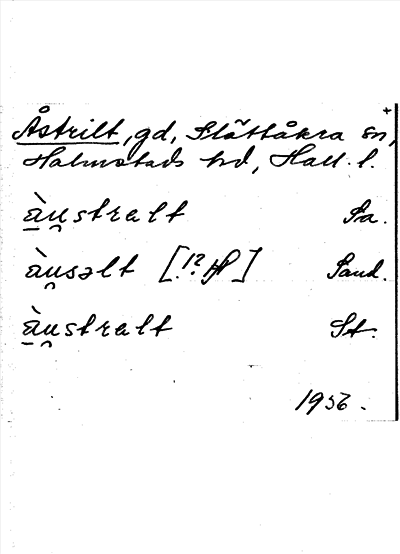 +
Åstrilt, gd, Slättåkra sn,
Halmstads hd, Hall. l.
à̱u̯stralt Sa.
àu̯səlt [!? ] Sand.
à̱u̯stralt St.
1956.